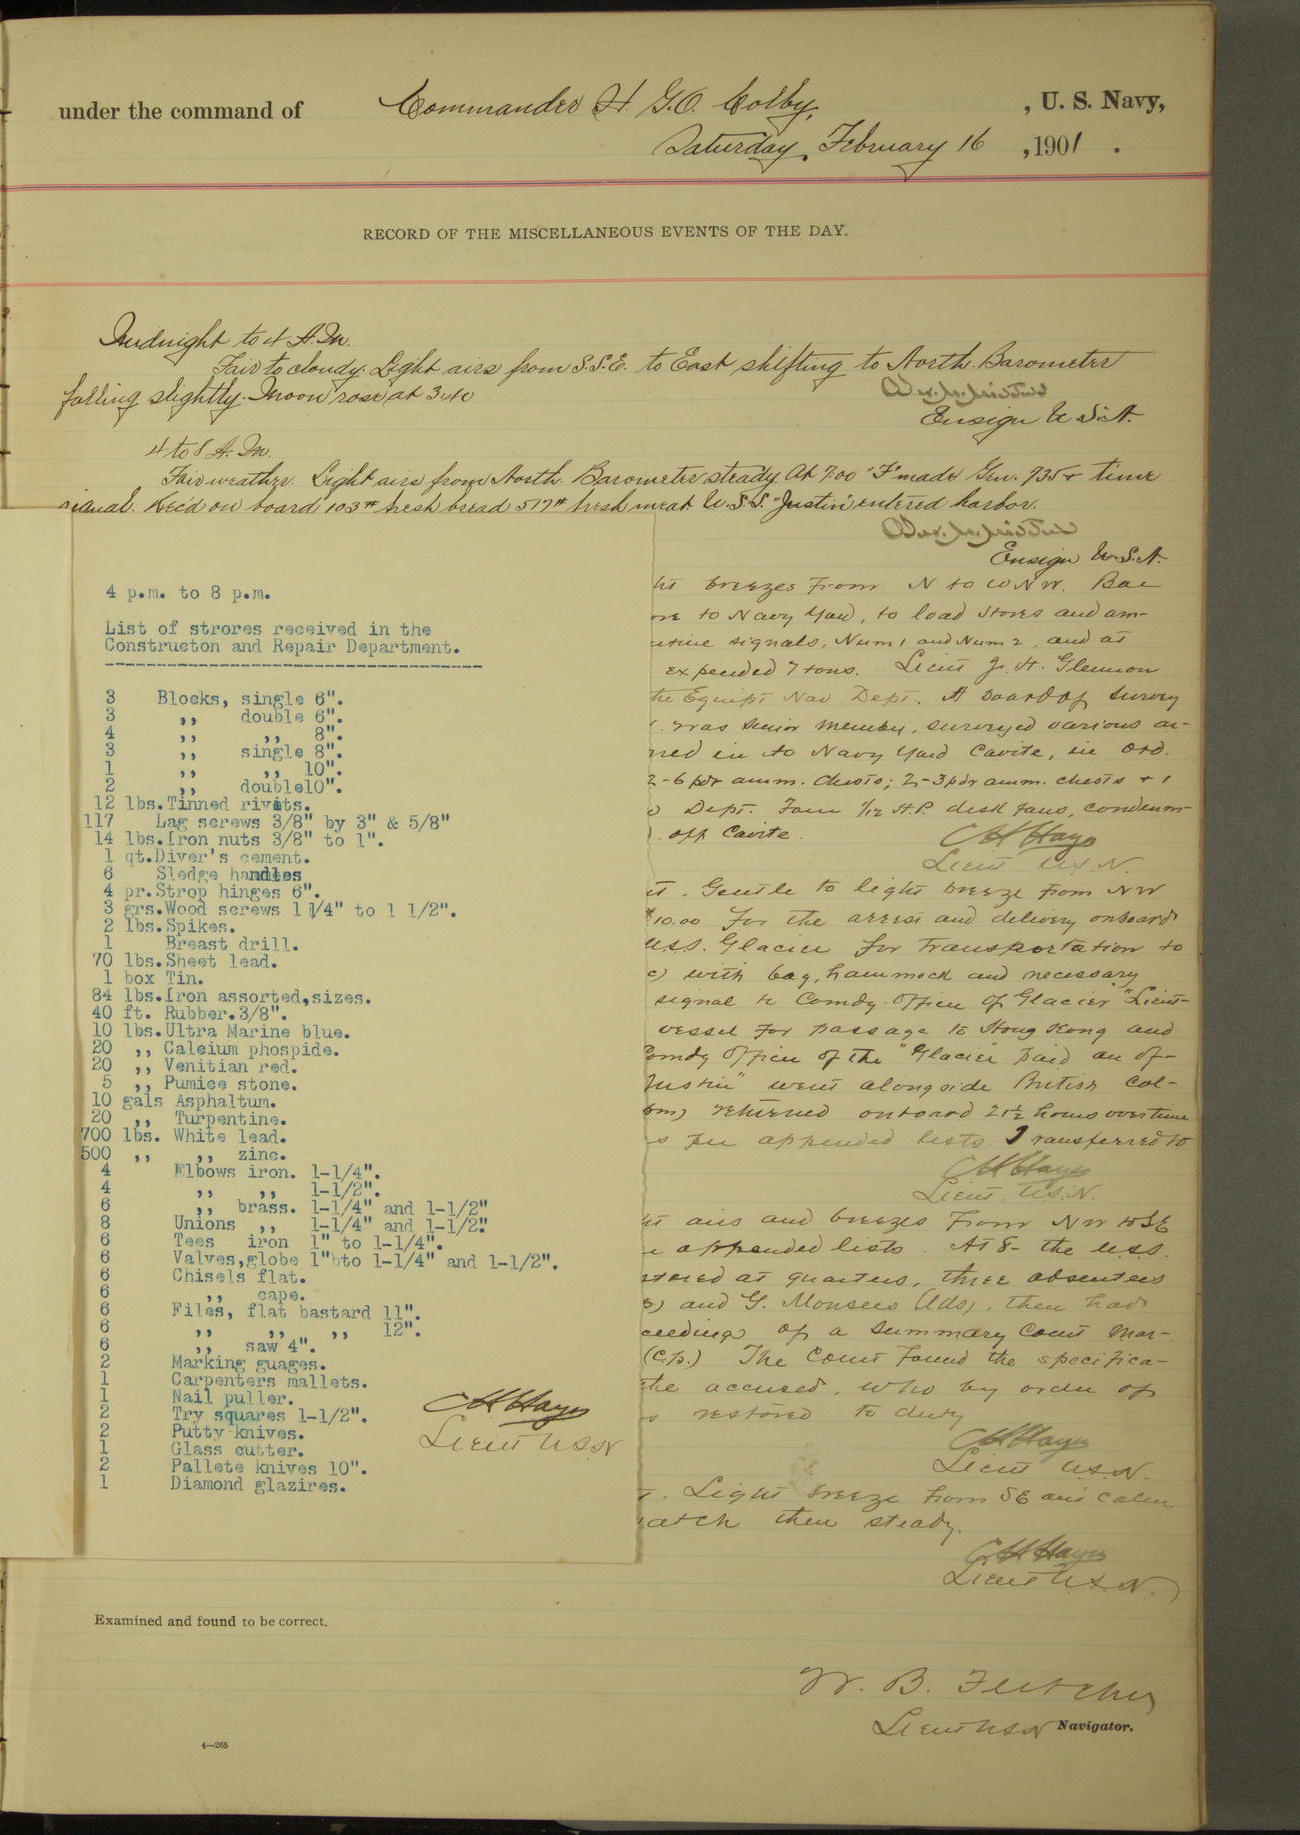 under the command of Commander H. G. O. Colby, , U. S. Navy,
Saturday, February 16 , 1901 .
RECORD OF THE MISCELLANEOUS EVENTS OF THE DAY.
Midnight to 4 A.M.
Fair to cloudy. Light airs from S.S.E. to East shifting to North. Barometer
falling slightly. Moon rose at 3:40
Ensign U.S.N.
4 to 8 A.M.
Fair weather. Light airs from North. Barometer steady. At 7:00 "F" made Gen. 735+ time
signal. Rec'd on board 103# fresh bread 517# fresh meat. U.S.S. "Justin" entered harbor.
Ensign U.S.N.
4 p.m. to 8 p.m.
List of strores received in the
Constructon and Repair Department.
3 Blocks, single 6".
3 ,, double 6".
4 ,, ,, 8".
3 ,, single 8".
1 ,, ,, 10".
2 ,, double10".
12 lbs.Tinned rivets.
117 Lag screws 3/8" by 3" & 5/8"
14 lbs.Iron nuts 3/8" to 1".
1 qt.Diver's cement.
6 Sledge handles
4 pr.Strop hinges 6".
3 grs.Wood screws 1 1/4" to 1 1/2".
2 lbs.Spikes.
1 Breast drill.
70 lbs.Sheet lead.
1 box Tin.
84 lbs.Iron assorted,sizes.
40 ft. Rubber.3/8".
10 lbs.Ultra Marine blue.
20 ,, Calcium phospide.
20 ,, Venitian red.
5 ,, Pumice stone.
10 gals Asphaltum.
20 ,, Turpentine.
700 lbs. White lead.
500 ,, ,, zinc.
4 Elbows iron. 1-1/4".
4 ,, ,, 1-1/2".
6 ,, brass. 1-1/4" and 1-1/2"
8 Unions ,, 1-1/4" and 1-1/2".
6 Tees iron 1" to 1-1/4".
6 Valves,globe 1"bto 1-1/4" and 1-1/2".
6 Chisels flat.
6 ,, cape.
6 Files, flat bastard 11".
6 ,, ,, ,, 12".
6 ,, saw 4".
2 Marking guages.
1 Carpenters mallets.
1 Nail puller.
2 Try squares 1-1/2".
2 Putty knives.
1 Glass cutter.
2 Pallete knives 10".
1 Diamond glazires.
C H Hayes
Lieut U.S.N
ht breezes from N to WNW. Bar
ore to Navy Yard, to load stores and am-
utine signals, Num 1 and Num 2, and at
expended 7 tons. Lieut J. H. Glennon
the Equipt Nav Dept. A board of survey
was senior member, surveyed various ar-
ned in to Navy Yard Cavite, in Ord.
2-6 pdr amm. chests; 2-3 pdr amm. chests + 1
Dept. Four 1/12 H.P. desk fans, condemn-
off Cavite.
C H Hayes
Lieut U.S.N.
t. Gentle to light breeze from NW
$10.00 for the arrest and delivery onboard
U.S.S. Glacier for transportation to
c) with bag, hammock and necessary
signal to Comdg. Officer of Glacier "Lieut-
vessel for passage to Hong Kong and
Comdg Officer of the "Glacier" paid an of-
Justin" went alongside British Col-
om) returned onboard 21½ hours overtime
s per appended lists. Transferred to
C H Hayes
Lieut, U.S.N.
ht airs and breezes from NW to SE
appended lists. At 8- the U.S.S.
stered at quarters, three absentees
and G. Monsees (Lds), then had
ceedings of a Summary Court Mar-
(C.p.) The Court found the specifica-
the accused, who by order of
s restored to duty
C H Hayes
Lieut U.S.N.
t. Light breeze from SE and calm
watch then steady.
C H Hayes
Lieut U.S.N.
Examined and found to be correct.
W. B. Fletcher
Lieut USN Navigator.
4—265